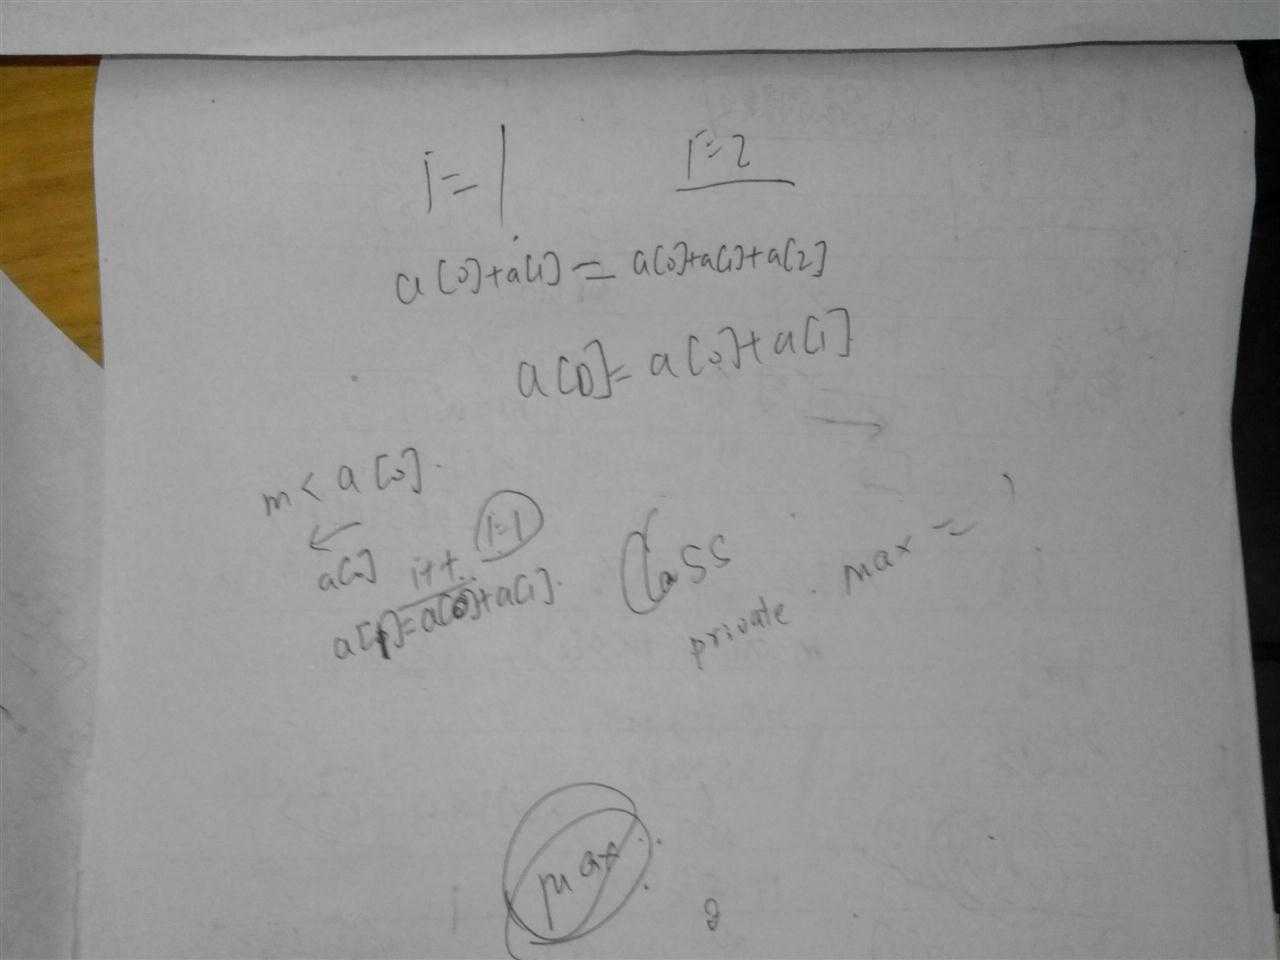 i=1 i=2
a[0]+a[1] = a[0]+a[1]+a[2]
a[0]= a[0]+a[1]
m< a[0].
a[0] i++ i=1
a[1]=a[0]+a[1].
Class
private max =
max